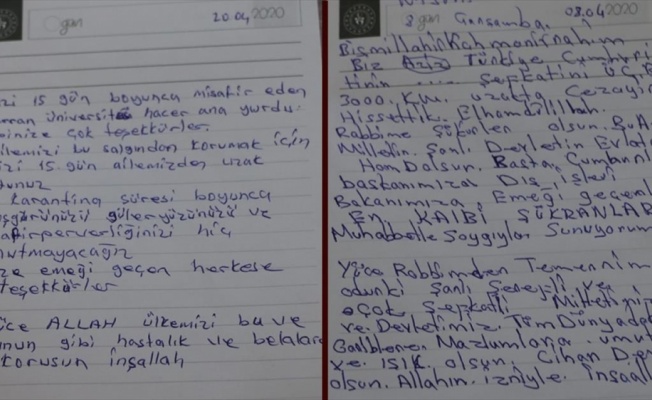 gan
20.04/2020
izi 15 gün boyunca misafir eden
eran üniversitesi hacer ana yurdu
inize çok teşekkürler.
ilemizi bu salgından korumak için
izi 15 gün ailemizden uzak
dunuz
karantina süresi boyunca
şgörünüzü güleryüzünüzü ve
afirperverliğinizi hiç
nutmayacağız
ze emeği geçen herkese
teşekkürler
üce ALLAH ülkemizi bu ve
unun gibi hastalık ve belalarda
korusun inşallah
8 gan Çarşamba. 08.04/2020
Bismillahirrahmanirrahim
Biz Aziz Türkiye Cumhuri
tinin .... Şefkatini
3000. Km. uzakta Cezayir
Hissettik. Elhamdülillah.
Rabbime Şükürler olsun.
Milletin. Şanlı Devletin Evlat
Hamdolsun. Başta. Cumhur
başkanımıza Dış işleri
Bakanımıza. Emeği geçen
En. KALBİ ŞÜKRANLAR
Muhabbetle Saygıyla Sunuyorum
Yüce Rabbimden Temennim
odurki Şanlı Şerefli ve
çok Şefkatli Milletimiz
ve Devletimiz. Tüm Dünyada
Gariblere. Mazlumlara. umut
ve. IŞIK. olsun. Cihan
olsun. Allahın. izniyle. inşaal